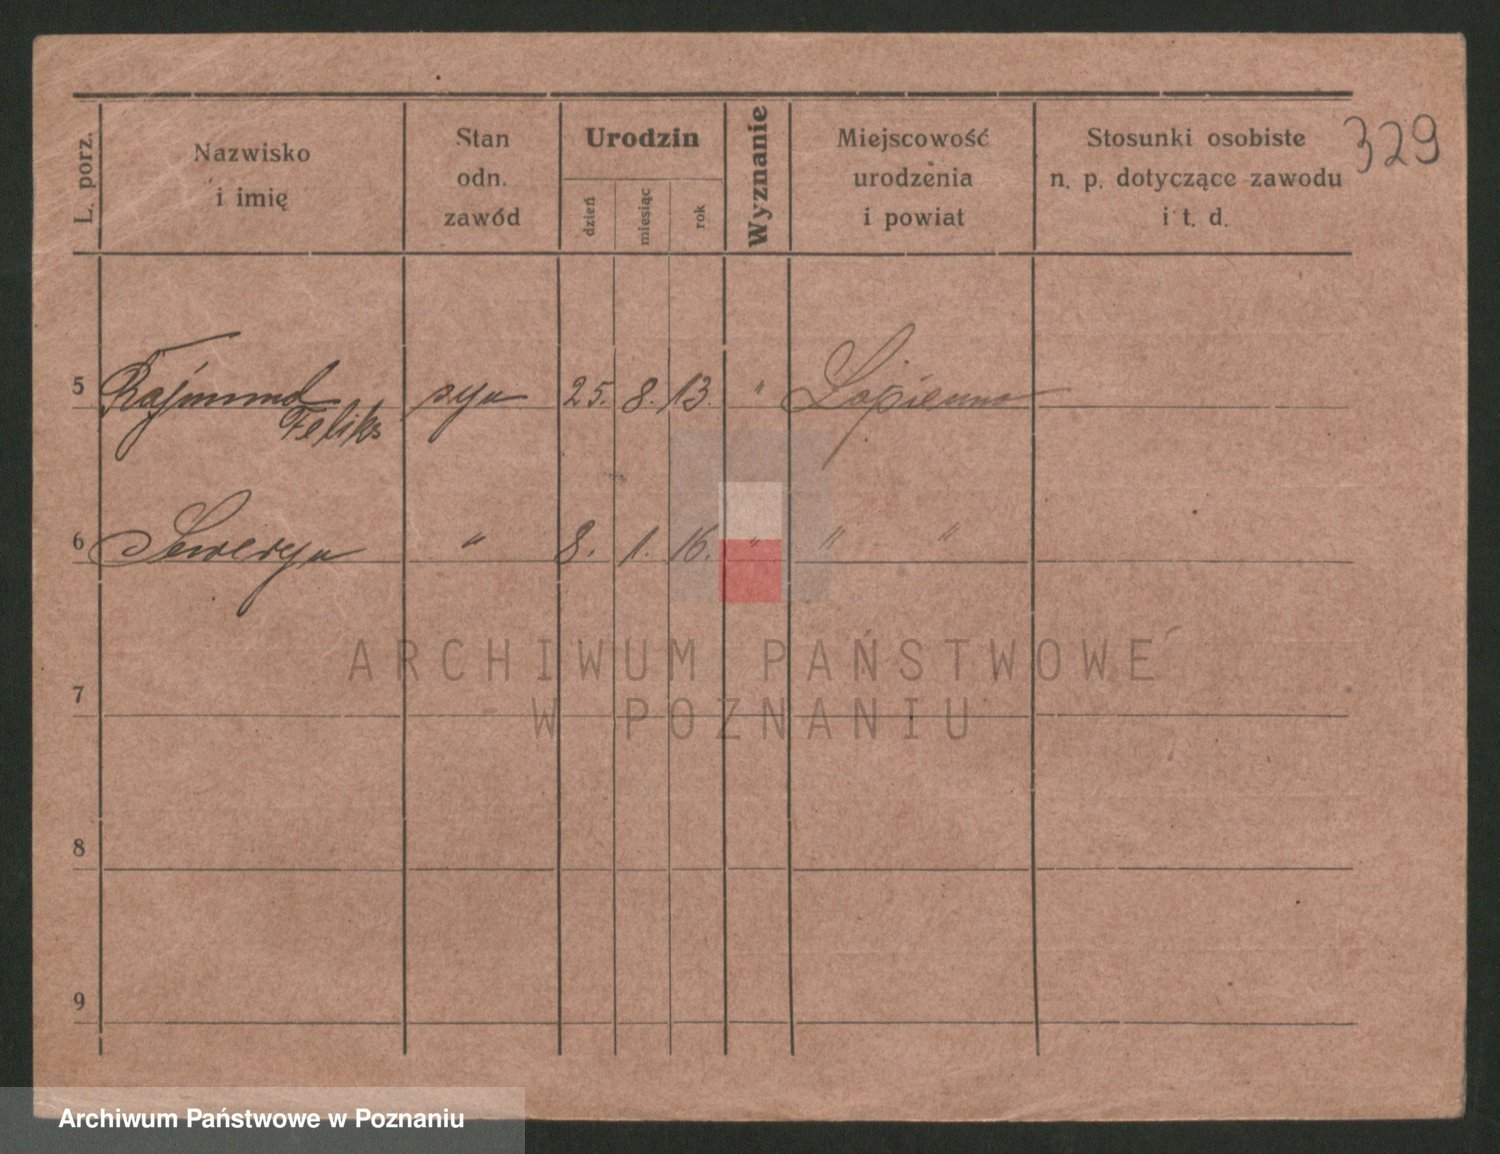 329
L. porz.
Nazwisko
i imię
Stan
odn.
zawód
Urodzin
dzień
miesiąc
rok
Wyznanie
Miejscowość
urodzenia
i powiat
Stosunki osobiste
n. p. dotyczące zawodu
i t. d.
5 Rajmund syn 25. 8. 13. " Łopienno
Feliks
6 Seweryn " 8. 1. 16. " " "
ARCHIWUM PAŃSTWOWE
W POZNANIU
7
8
9
Archiwum Państwowe w Poznaniu